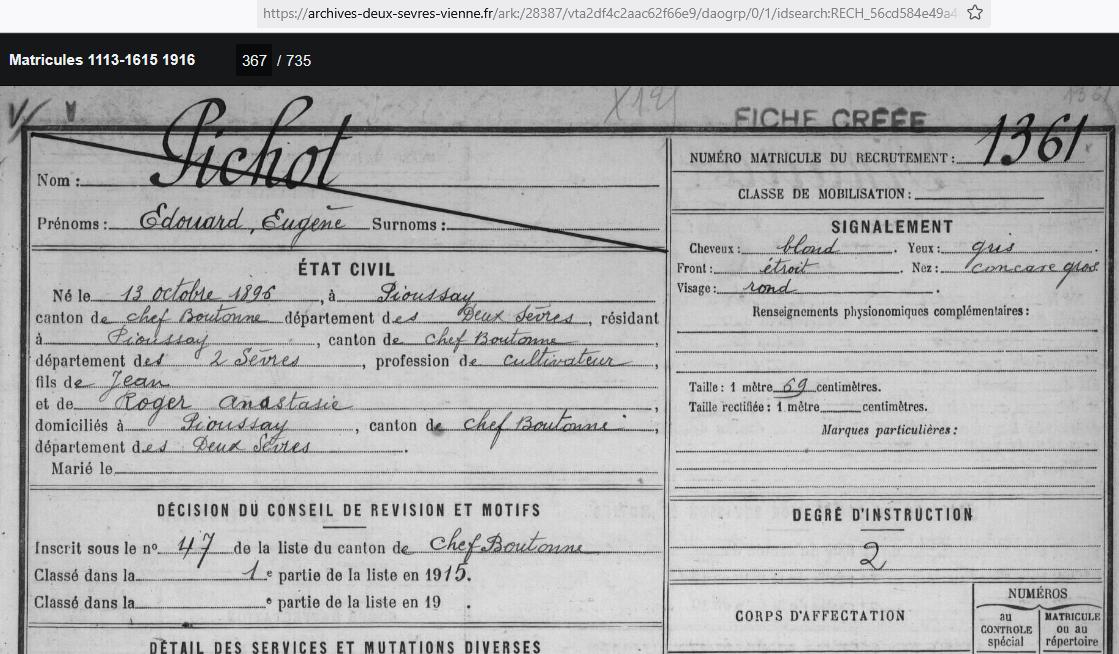 https://archives-deux-sevres-vienne.fr/ark:/28387/vta2df4c2aac62f66e9/daogrp/0/1/idsearch:RECH_56cd584e49a4
Matricules 1113-1615 1916 367 / 735
FICHE CRÉÉE
Nom : Pichot
Prénoms : Edouard, Eugène Surnoms :
ÉTAT CIVIL
Né le 13 octobre 1896, à Pioussay
canton de chef Boutonne département des Deux Sèvres, résidant
à Pioussay, canton de chef Boutonne,
département des 2 Sèvres, profession de cultivateur,
fils de Jean
et de Roger Anastasie,
domiciliés à Pioussay, canton de chef Boutonne,
département des Deux Sèvres.
Marié le
DÉCISION DU CONSEIL DE REVISION ET MOTIFS
Inscrit sous le nº 47 de la liste du canton de Chef Boutonne
Classé dans la 1e partie de la liste en 1915.
Classé dans la e partie de la liste en 19 .
DÉTAIL DES SERVICES ET MUTATIONS DIVERSES
NUMÉRO MATRICULE DU RECRUTEMENT : 1361
CLASSE DE MOBILISATION :
SIGNALEMENT
Cheveux : blond. Yeux : gris.
Front : étroit. Nez : concave gros
Visage : rond.
Renseignements physionomiques complémentaires :
Taille : 1 mètre 69 centimètres.
Taille rectifiée : 1 mètre centimètres.
Marques particulières :
DEGRÉ D'INSTRUCTION
2
CORPS D'AFFECTATION
NUMÉROS
au CONTROLE spécial
MATRICULE ou au répertoire